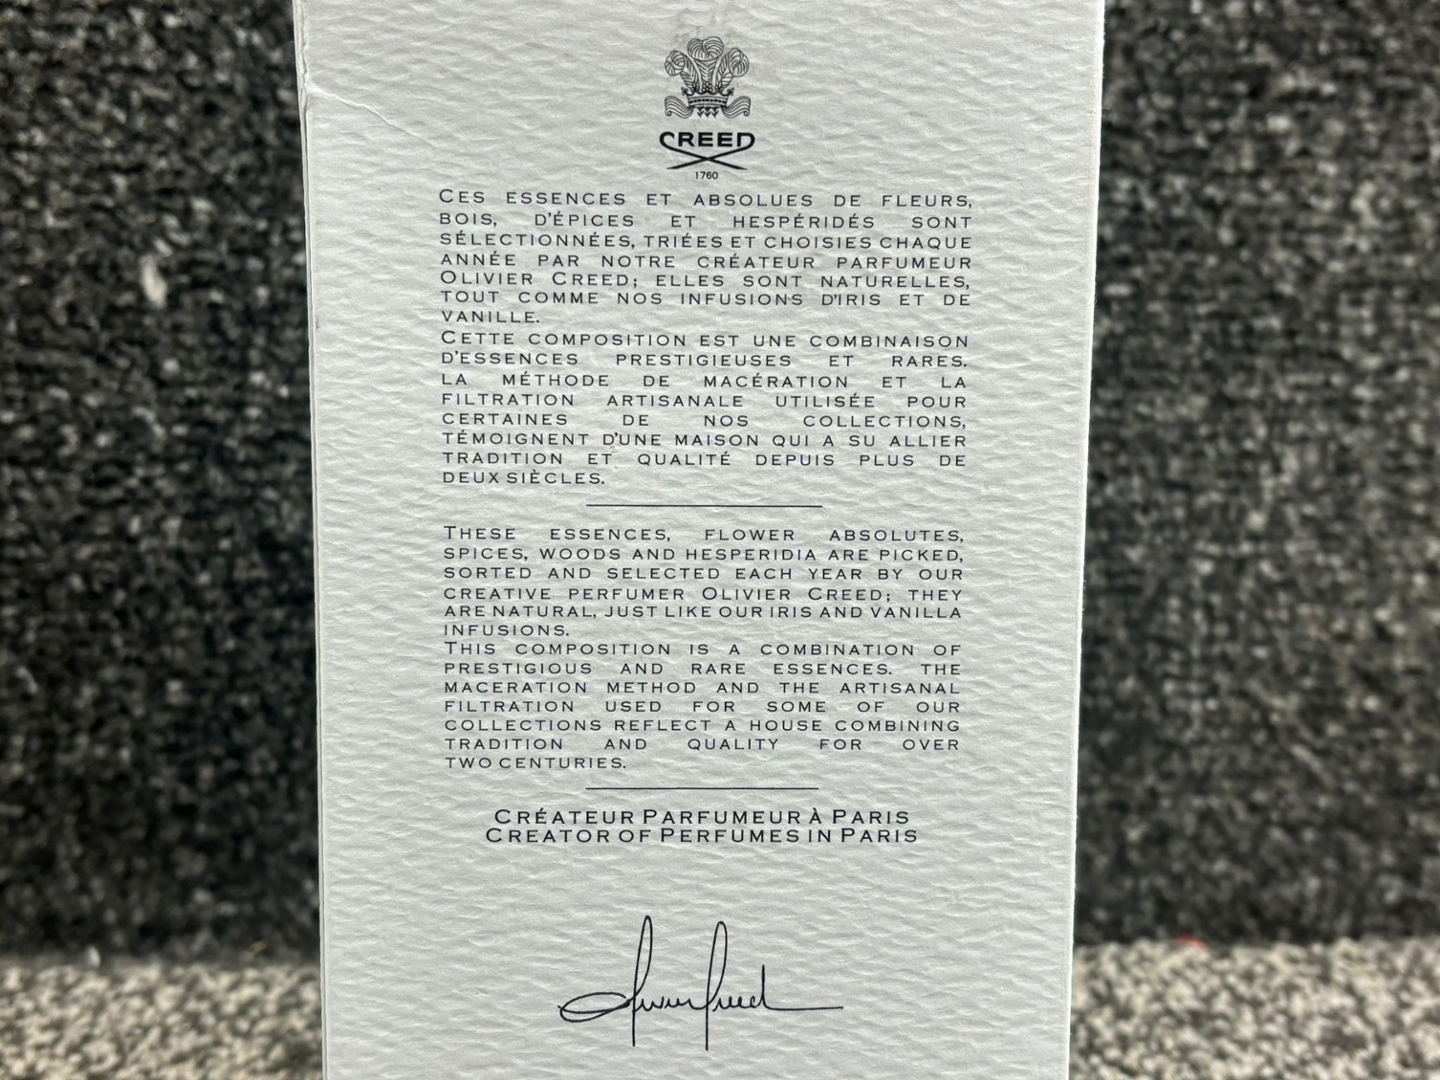 CREED
1760
CES ESSENCES ET ABSOLUES DE FLEURS,
BOIS, D'ÉPICES ET HESPÉRIDÉS SONT
SÉLECTIONNÉES, TRIÉES ET CHOISIES CHAQUE
ANNÉE PAR NOTRE CRÉATEUR PARFUMEUR
OLIVIER CREED; ELLES SONT NATURELLES,
TOUT COMME NOS INFUSIONS D'IRIS ET DE
VANILLE.
CETTE COMPOSITION EST UNE COMBINAISON
D'ESSENCES PRESTIGIEUSES ET RARES.
LA MÉTHODE DE MACÉRATION ET LA
FILTRATION ARTISANALE UTILISÉE POUR
CERTAINES DE NOS COLLECTIONS,
TÉMOIGNENT D'UNE MAISON QUI A SU ALLIER
TRADITION ET QUALITÉ DEPUIS PLUS DE
DEUX SIÈCLES.
THESE ESSENCES, FLOWER ABSOLUTES,
SPICES, WOODS AND HESPERIDIA ARE PICKED,
SORTED AND SELECTED EACH YEAR BY OUR
CREATIVE PERFUMER OLIVIER CREED; THEY
ARE NATURAL, JUST LIKE OUR IRIS AND VANILLA
INFUSIONS.
THIS COMPOSITION IS A COMBINATION OF
PRESTIGIOUS AND RARE ESSENCES. THE
MACERATION METHOD AND THE ARTISANAL
FILTRATION USED FOR SOME OF OUR
COLLECTIONS REFLECT A HOUSE COMBINING
TRADITION AND QUALITY FOR OVER
TWO CENTURIES.
CRÉATEUR PARFUMEUR À PARIS
CREATOR OF PERFUMES IN PARIS
Olivier Creed